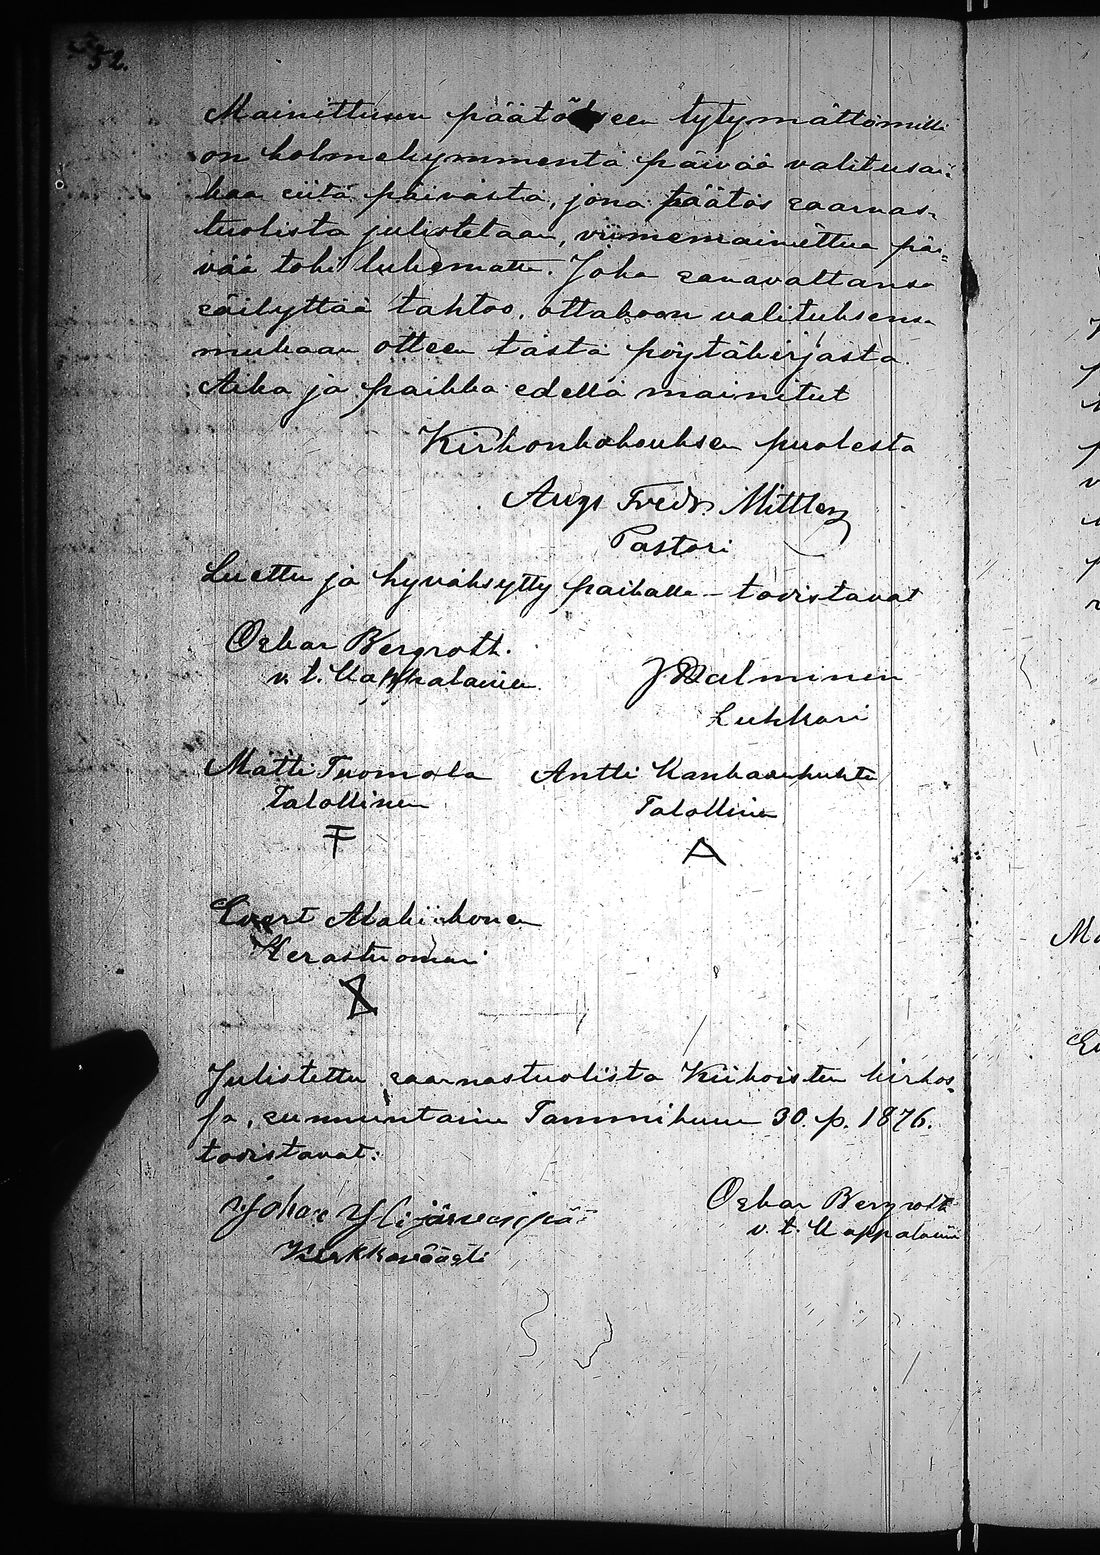 52.
Mainittuun päätökseen tytymättömillä
on kolmekymmentä päivää valitusai-
kaa siitä päivästä, jona päätös saarnas-
tuolista julistetaan, viimemainittua päi-
vää toki lukematta. Joka sanavaltansa
säilyttää tahtoo, ottakoon valituksensa
mukaan otteen tästä pöytäkirjasta.
Aika ja paikka edellä mainitut
Kirkonkokouksen puolesta
Aug. Fredr. Mittler
Pastori
Luettu ja hyväksytty paikalla – todistavat
Oskar Bergroth.
v. t. Kappalainen
J Salminen
Lukkari
Matti Tuomola Antti Kankaanhuhta
Talollinen
Talollinen
Evert Alakiikonen
Herastuomari
Julistettu saarnastuolista Kiikoisten kirkos-
sa, sunnuntaina Tammikuun 30. p. 1876.
todistavat:
Johan Ylijärvenpää
Oskar Bergroth
v. t. Kappalainen
Kirkkoväästi